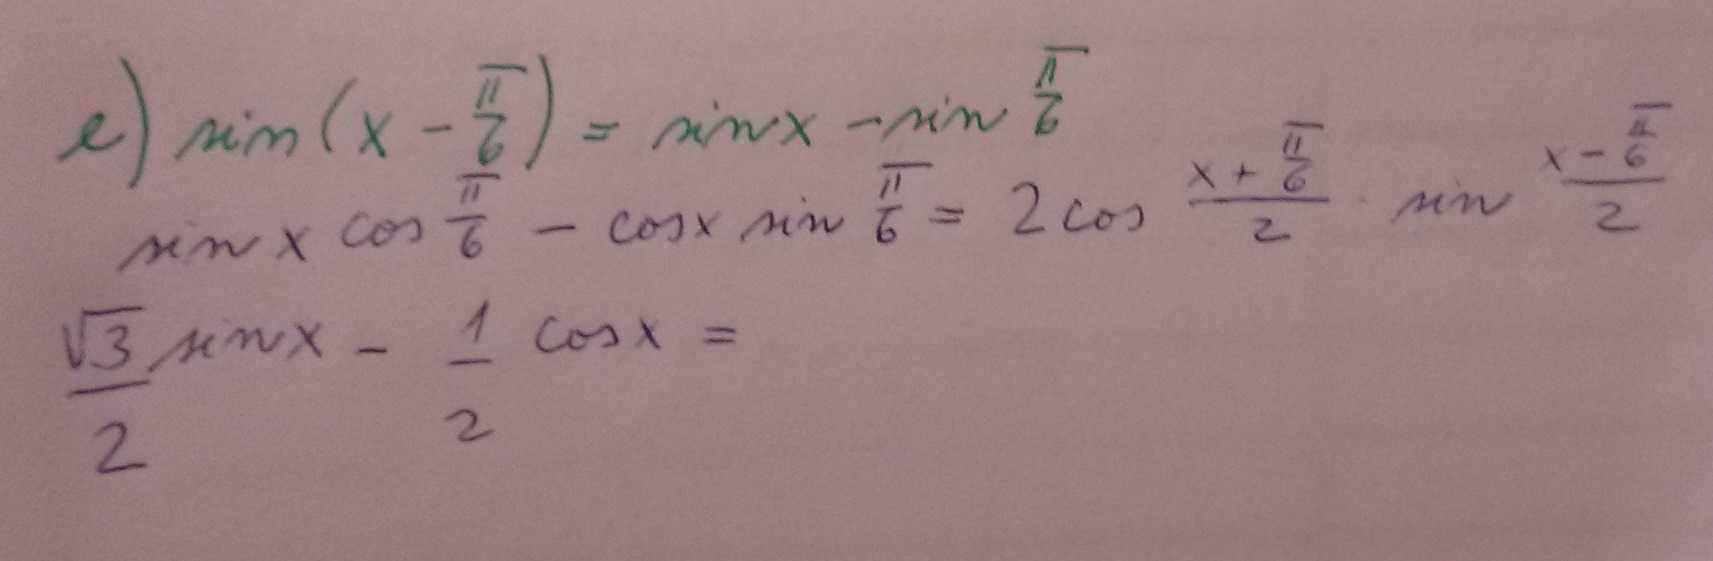 e) sin(x - π/6) = sinx - sin π/6
sin x cos π/6 - cosx sin π/6 = 2 cos (x + π/6)/2 · sin (x - π/6)/2
√3/2 sinx - 1/2 cosx =